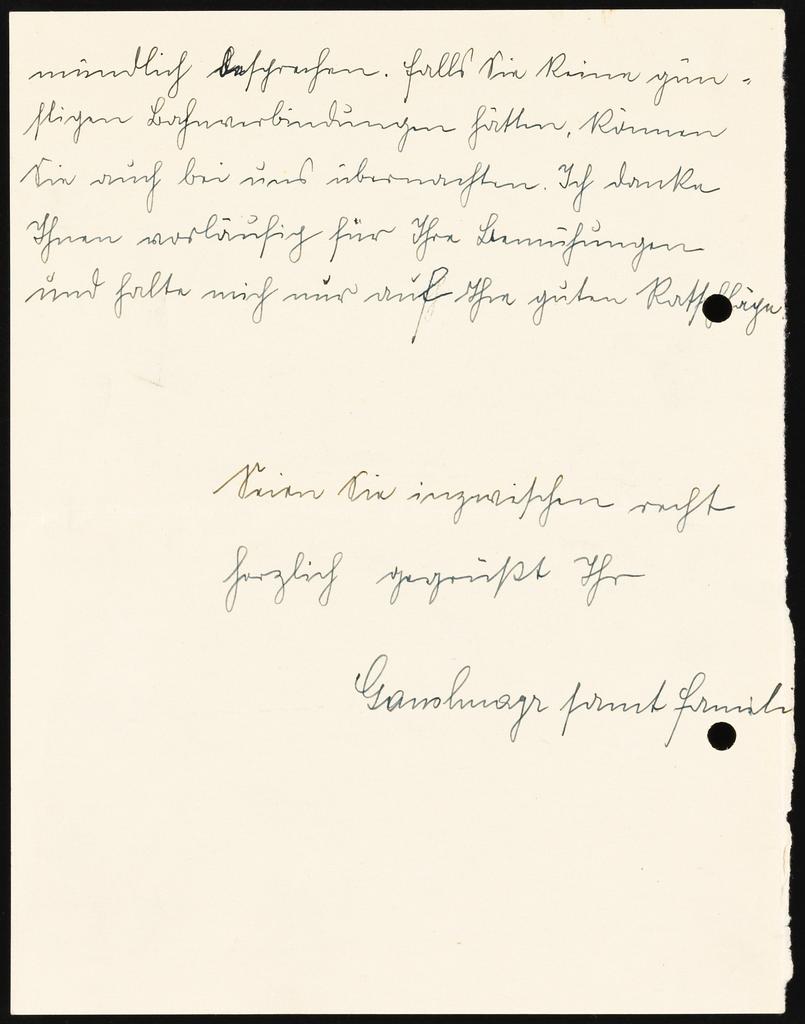 mündlich besprechen. Falls Sie keine gün-
stigen Bahnverbindungen hätten, können
Sie auch bei uns übernachten. Ich danke
Ihnen vorläufig für Ihre Bemühungen
und halte mich nur auf Ihre guten Ratschläge.
Seien Sie inzwischen recht
herzlich gegrüßt Ihr
samt Famili